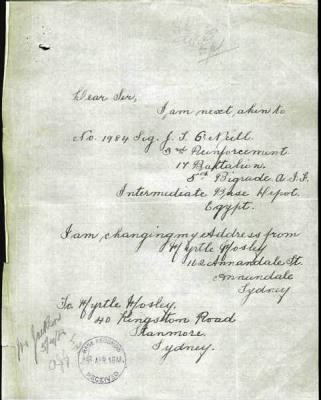 Dear Sir,
I am next akin to
No. 1984 Sig. J. T. O'Neill.
3rd Reinforcement
17 Battalion.
5th Brigade A.I.F.
Intermediate Base Depot.
Egypt.
I am, changing my Address from
Myrtle Hosley
162 Annandale St.
Annandale
Sydney
To Myrtle Hosley.
40 Kingston Road
Stanmore.
Sydney.
BASE RECORDS
APR 1916
RECEIVED